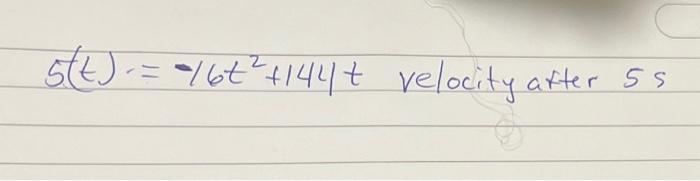 s(t) = -16t²+144t velocity after 5 s